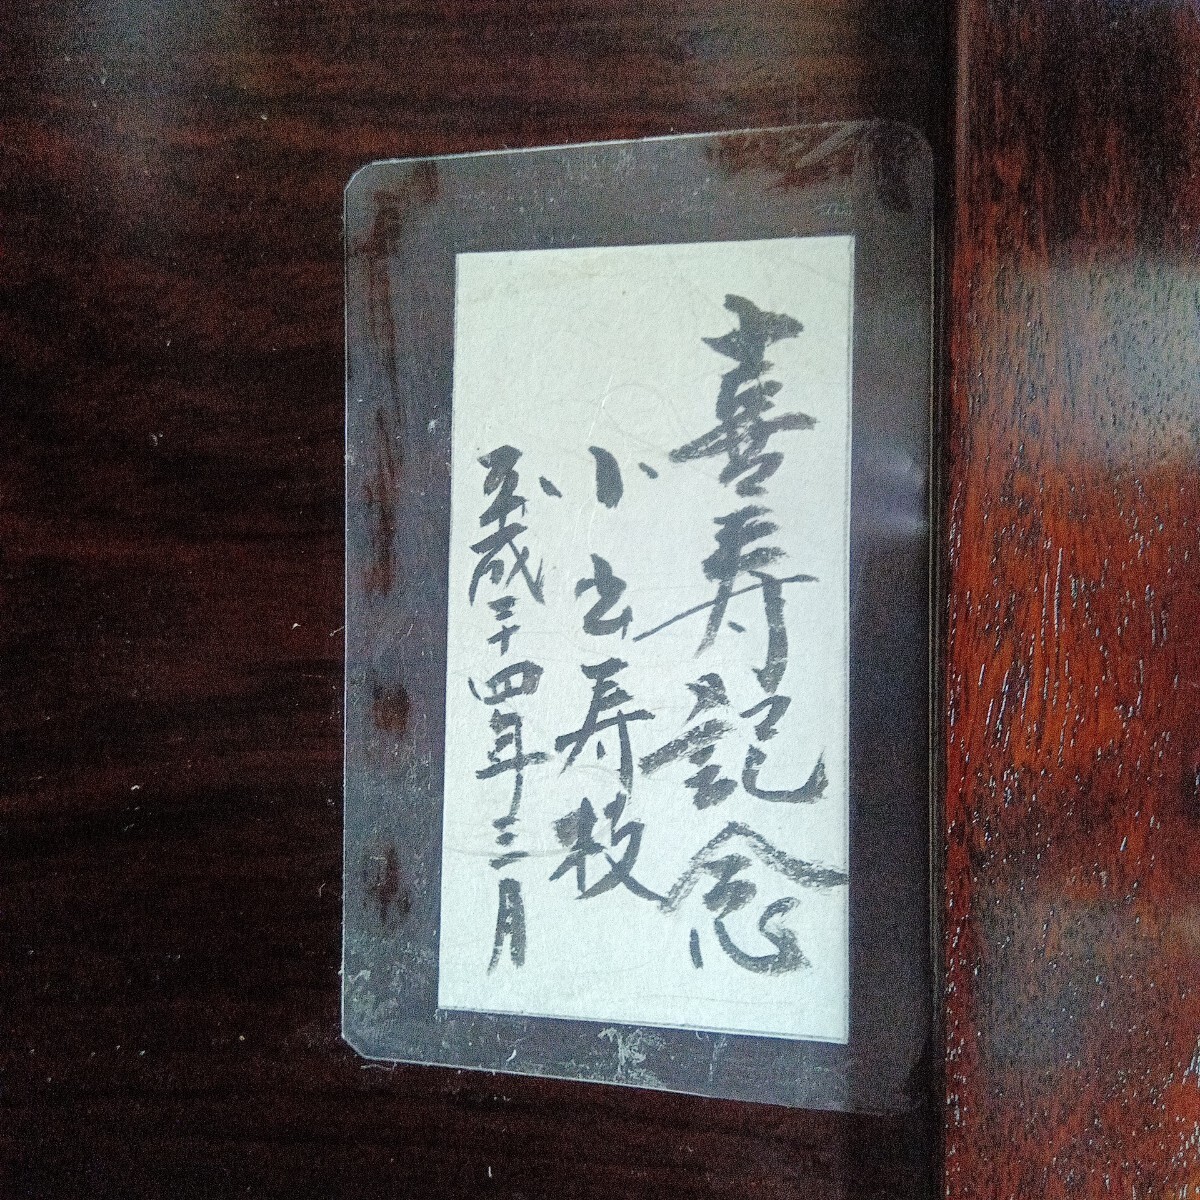 喜寿記念
小出寿枝
平成二十四年三月